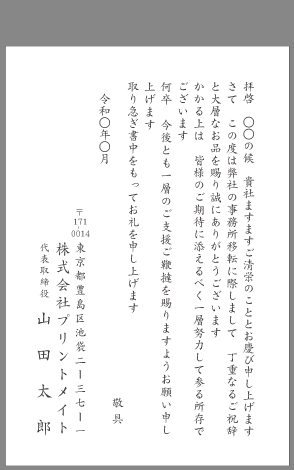 拝啓　〇〇の候　貴社ますますご清栄のこととお慶び申し上げます
さて　この度は弊社の事務所移転に際しまして　丁重なるご祝辞
と大層なお品を賜り誠にありがとうございます
かかる上は　皆様のご期待に添えるべく一層努力して参る所存で
ございます
何卒　今後とも一層のご支援ご鞭撻を賜りますようお願い申し
上げます
取り急ぎ書中をもってお礼を申し上げます
敬具
令和〇年〇月
〒171
0014
東京都豊島区池袋二ー三七ー一
株式会社プリントメイト
代表取締役　山田太郎